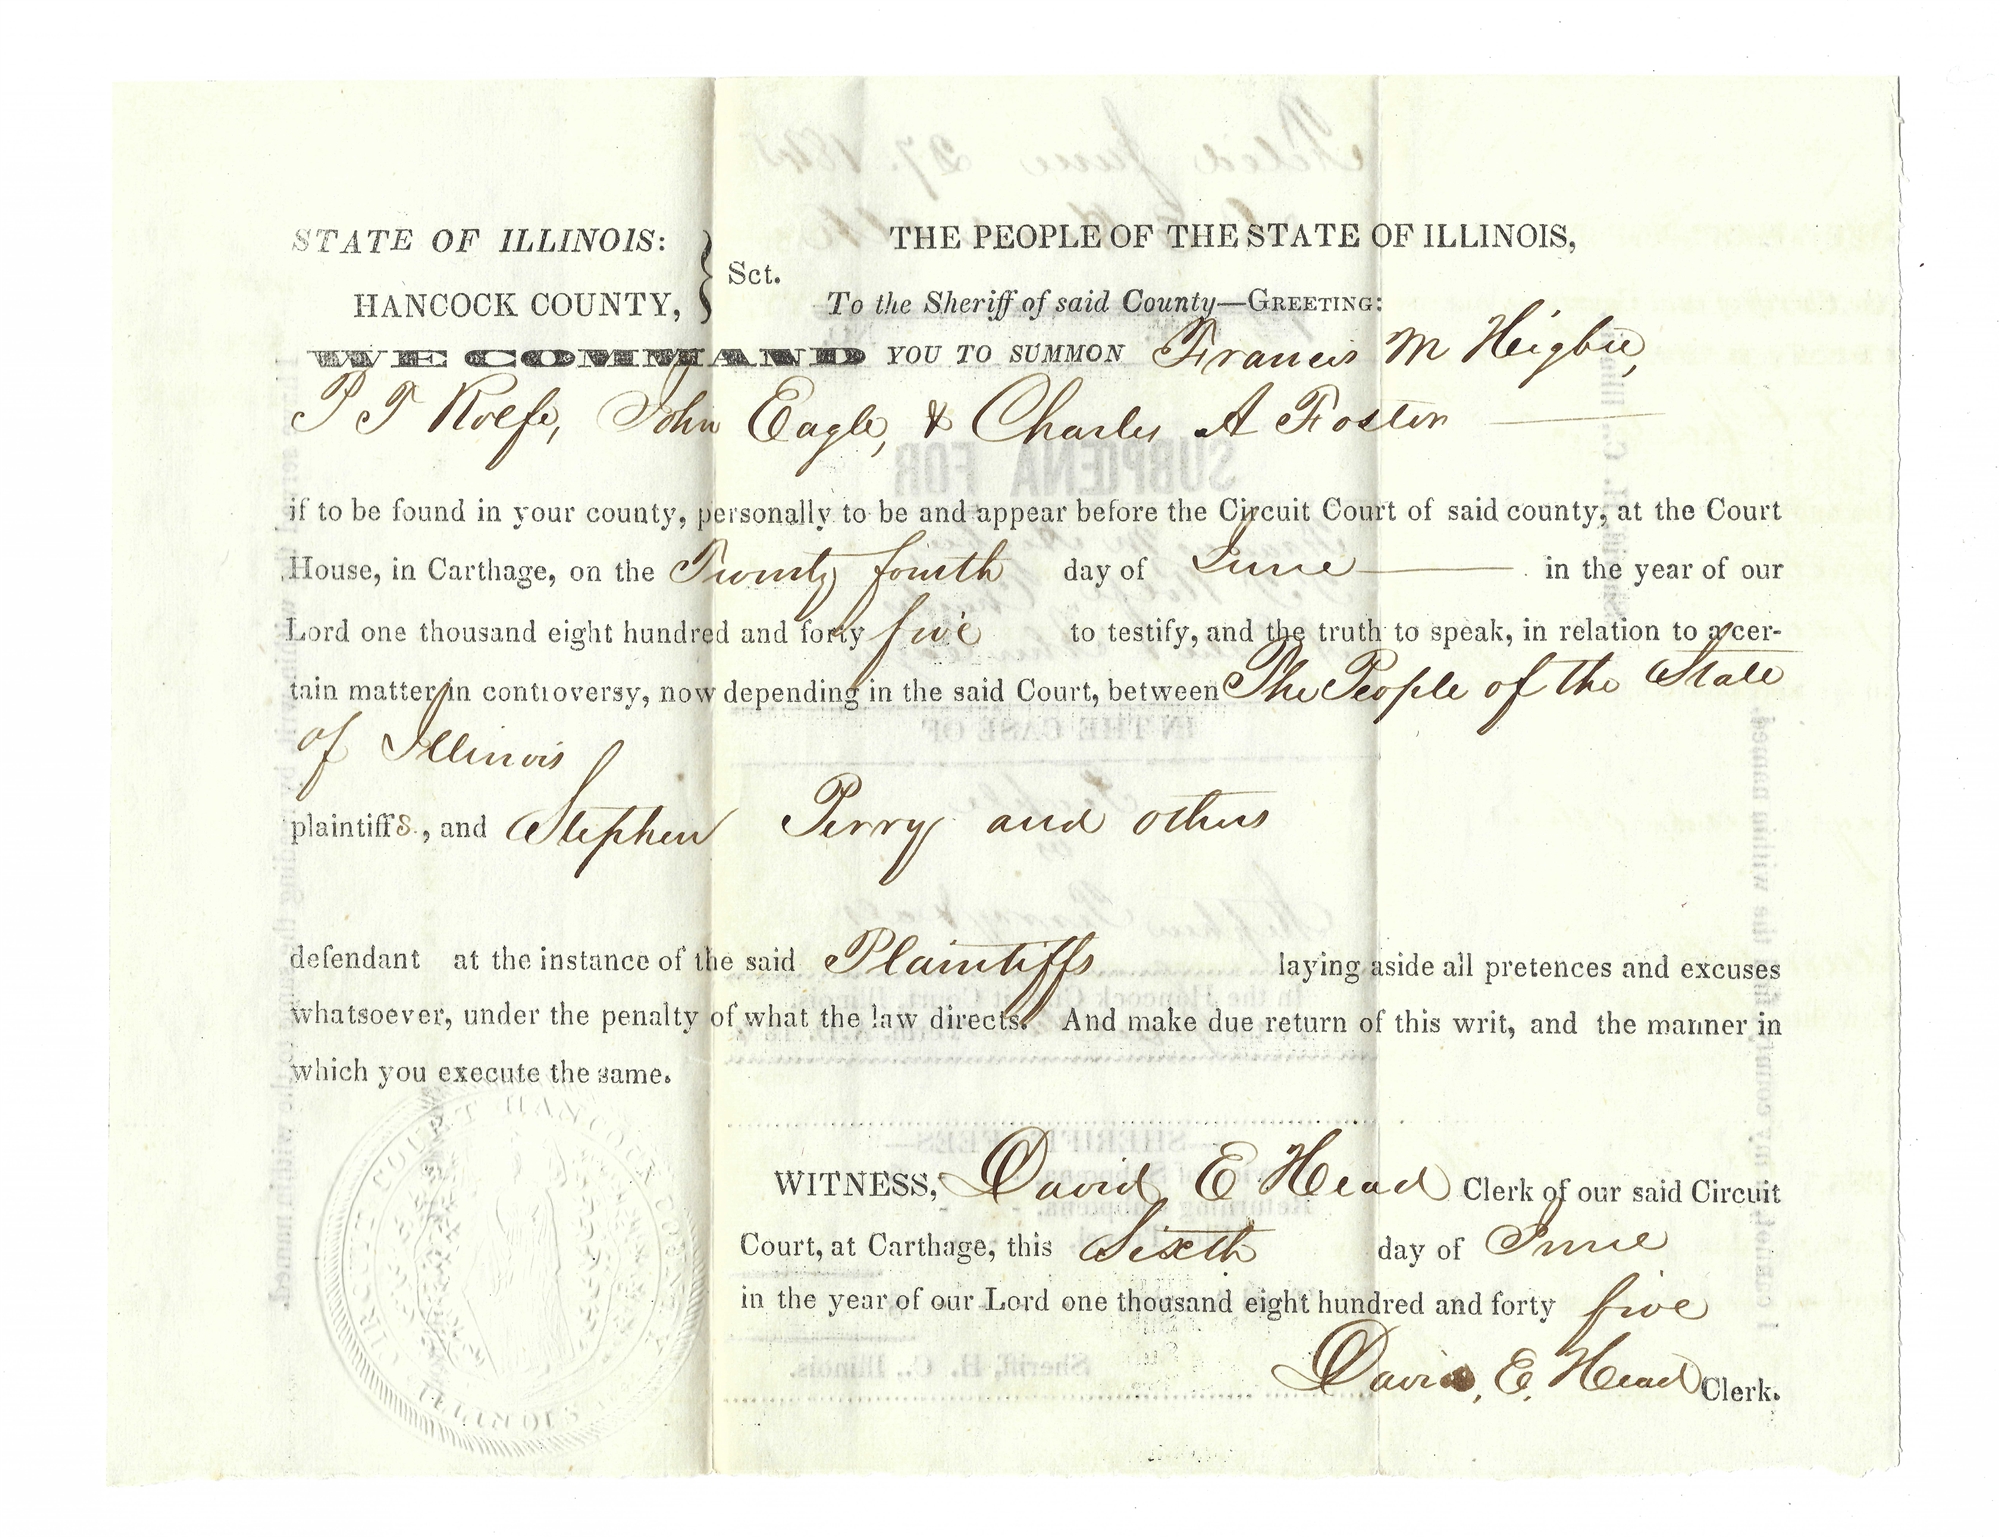 STATE OF ILLINOIS:
HANCOCK COUNTY,
Sct.
THE PEOPLE OF THE STATE OF ILLINOIS,
To the Sheriff of said County—GREETING:
WE COMMAND YOU TO SUMMON Francis M Heigbie,
P T Rolfe, John Eagle, & Charles A Foster
if to be found in your county, personally to be and appear before the Circuit Court of said county, at the Court
House, in Carthage, on the Twenty fourth day of June in the year of our
Lord one thousand eight hundred and forty five to testify, and the truth to speak, in relation to a cer-
tain matter in controversy, now depending in the said Court, between The People of the State
of Illinois
plaintiffs, and Stephen Perry and others
defendant at the instance of the said Plaintiffs laying aside all pretences and excuses
whatsoever, under the penalty of what the law directs. And make due return of this writ, and the manner in
which you execute the same.
CIRCUIT COURT HANCOCK COUNTY
ILLINOIS
WITNESS, David E Head Clerk of our said Circuit
Court, at Carthage, this Sixth day of June
in the year of our Lord one thousand eight hundred and forty five
David, E. Head Clerk.
Filed June 27. 1845
SUBPŒNA FOR
IN THE CASE OF
People
vs
Stephen Perry & als
In the Hancock Circuit Court, Illinois.
SHERIFF'S FEES
Sheriff, H. C., Illinois.